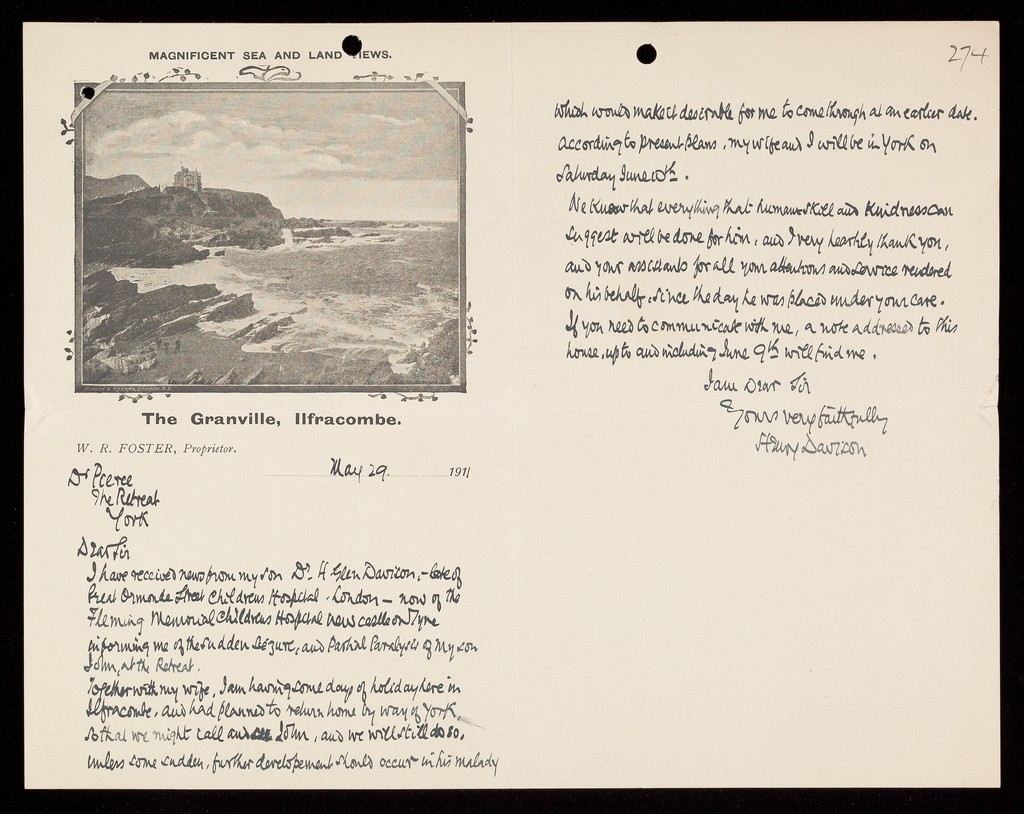 MAGNIFICENT SEA AND LAND VIEWS.
The Granville, Ilfracombe.
W. R. FOSTER, Proprietor.
May 29 1911
Dr Pierce
The Retreat
York
Dear Sir
I have received news from my son Dr. H Glen Davison, – late of
Great Ormonde Street Childrens Hospital - London – now of the
Fleming Memorial Childrens Hospital New castle on Tyne
informing me of the sudden Seizure, and Partial Paralysis of my son
John, at the Retreat.
Together with my wife, I am having some days of holiday here in
Ilfracombe, and had planned to return home by way of York,
so that we might call and see John, and we will still do so,
unless some sudden, further developement should occur in his malady
274
which would make it desirable for me to come through at an earlier date.
According to present plans, my wife and I will be in York on
Saturday June 10th.
We know that everything that human skill and kindness can
suggest will be done for him, and I very heartily thank you,
and your assistants for all your attentions and service rendered
on his behalf, since the day he was placed under your care.
If you need to communicate with me, a note addressed to this
house, up to and including June 9th will find me.
I am Dear Sir
Yours very faithfully
Henry Davison